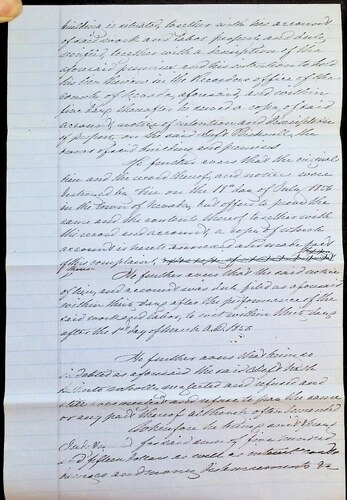 building is situate, together with his account
of said work and labor properly and duly
verified, together with a description of the
aforesaid premises and his intention to hold
his lien thereon in the Recorders office of the
county of Nevada, aforesaid, and within
five days thereafter he served a copy of said
account, notice of intention and description
of property on the said deft
owner of said building and premises
He further avers that the original
lien and the record thereof, and notice were
destroyed by fire on the 18th day of July 1856
in the town of Nevada, but offers to prove the
same and the contents thereof, together with
the record and account, a copy of which
account is hereto annexed and made part
of this complaint
He further avers that the said notice
of lien, and account was duly filed as aforesaid
within thirty days after the performance of the
said work and labor, to wit within thirty days
after the 1st day of March A.D. 1856
He further avers that being so
indebted as aforesaid the said deft hath
hitherto wholly neglected and refused and
still and refuses to pay the same
or any part thereof although often demanded
Wherefore he brings suit & prays
Judgt for said sum of five hundred
and fifteen dollars as well as interest costs
and money disbursements &c